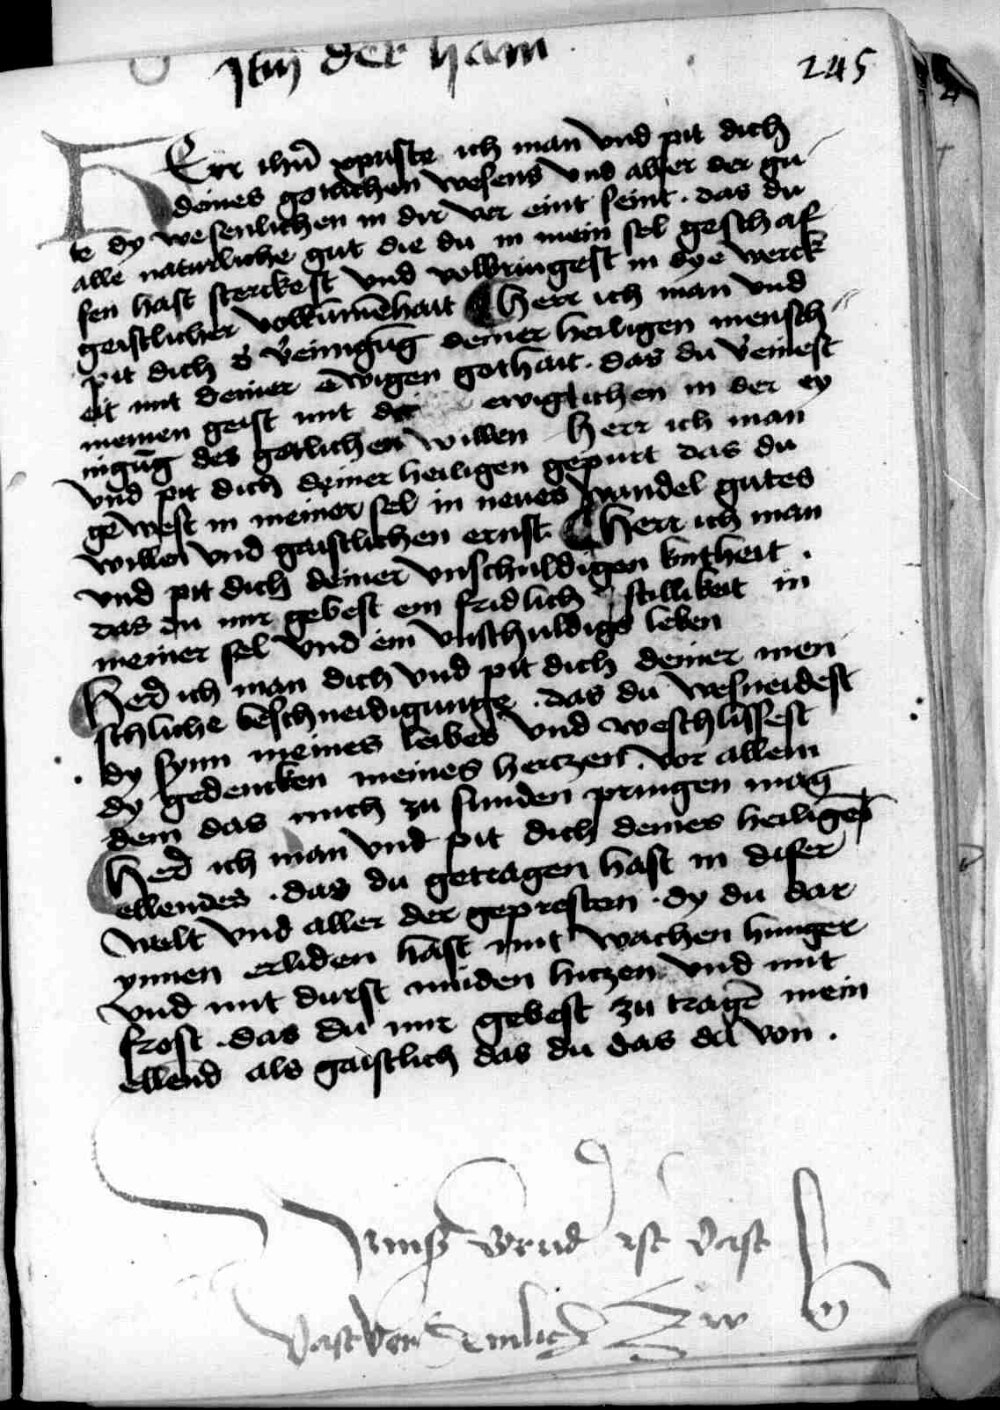 Itm der ham
245
HErr ihũ xpriste ich man vnd pit dich
deines gotlichen wesens vnd aller der gu
te dy wesenlichen in dir ver eint seint . das du
alle naturliche gut die du in mein sel geschaf
fen hast sterckest vnd volbringest in dye werck
geistlicher volkumēhait Herr ich man vnd
pit dich d̕ v̕einigūg deiner heiligen mensch
eit mit deiner ewigen gothait . das du v̕einest
meinen geist mit ewiglichen in der ey
nigūg des gotlichen willen Herr ich man
vnd pit dich deiner heiligen gepurt das du
gewest in meiner sel in neues wandel gutes
willen vnd gaistlichen ernst Herr ich man
vnd pit dich deiner vnschuldigen kintheit .
das du mir gebest ein fridlich stillikeit in
meiner sel vnd ein vnschuldigs leben
Her ich man dich vnd pit dich deiner men
schliche beschneidigunge . das du wesneidest
dy synn meines leibes vnd weschlissest
dy gedencken meines hertzen . vor allem
dem das mich zu sunden pringen mag
Her ich man vnd pit dich deines heiligen
ellendes . das du getragen hast in diser
welt vnd aller der geprestem . dy du dar
ynnen erliden hast mit wachen hunger
vnd mit durst muden hitzen vnd mit
frost . das du mir gebest zu tragē mein
ellend als gaistlich das du das da von .
ist vast